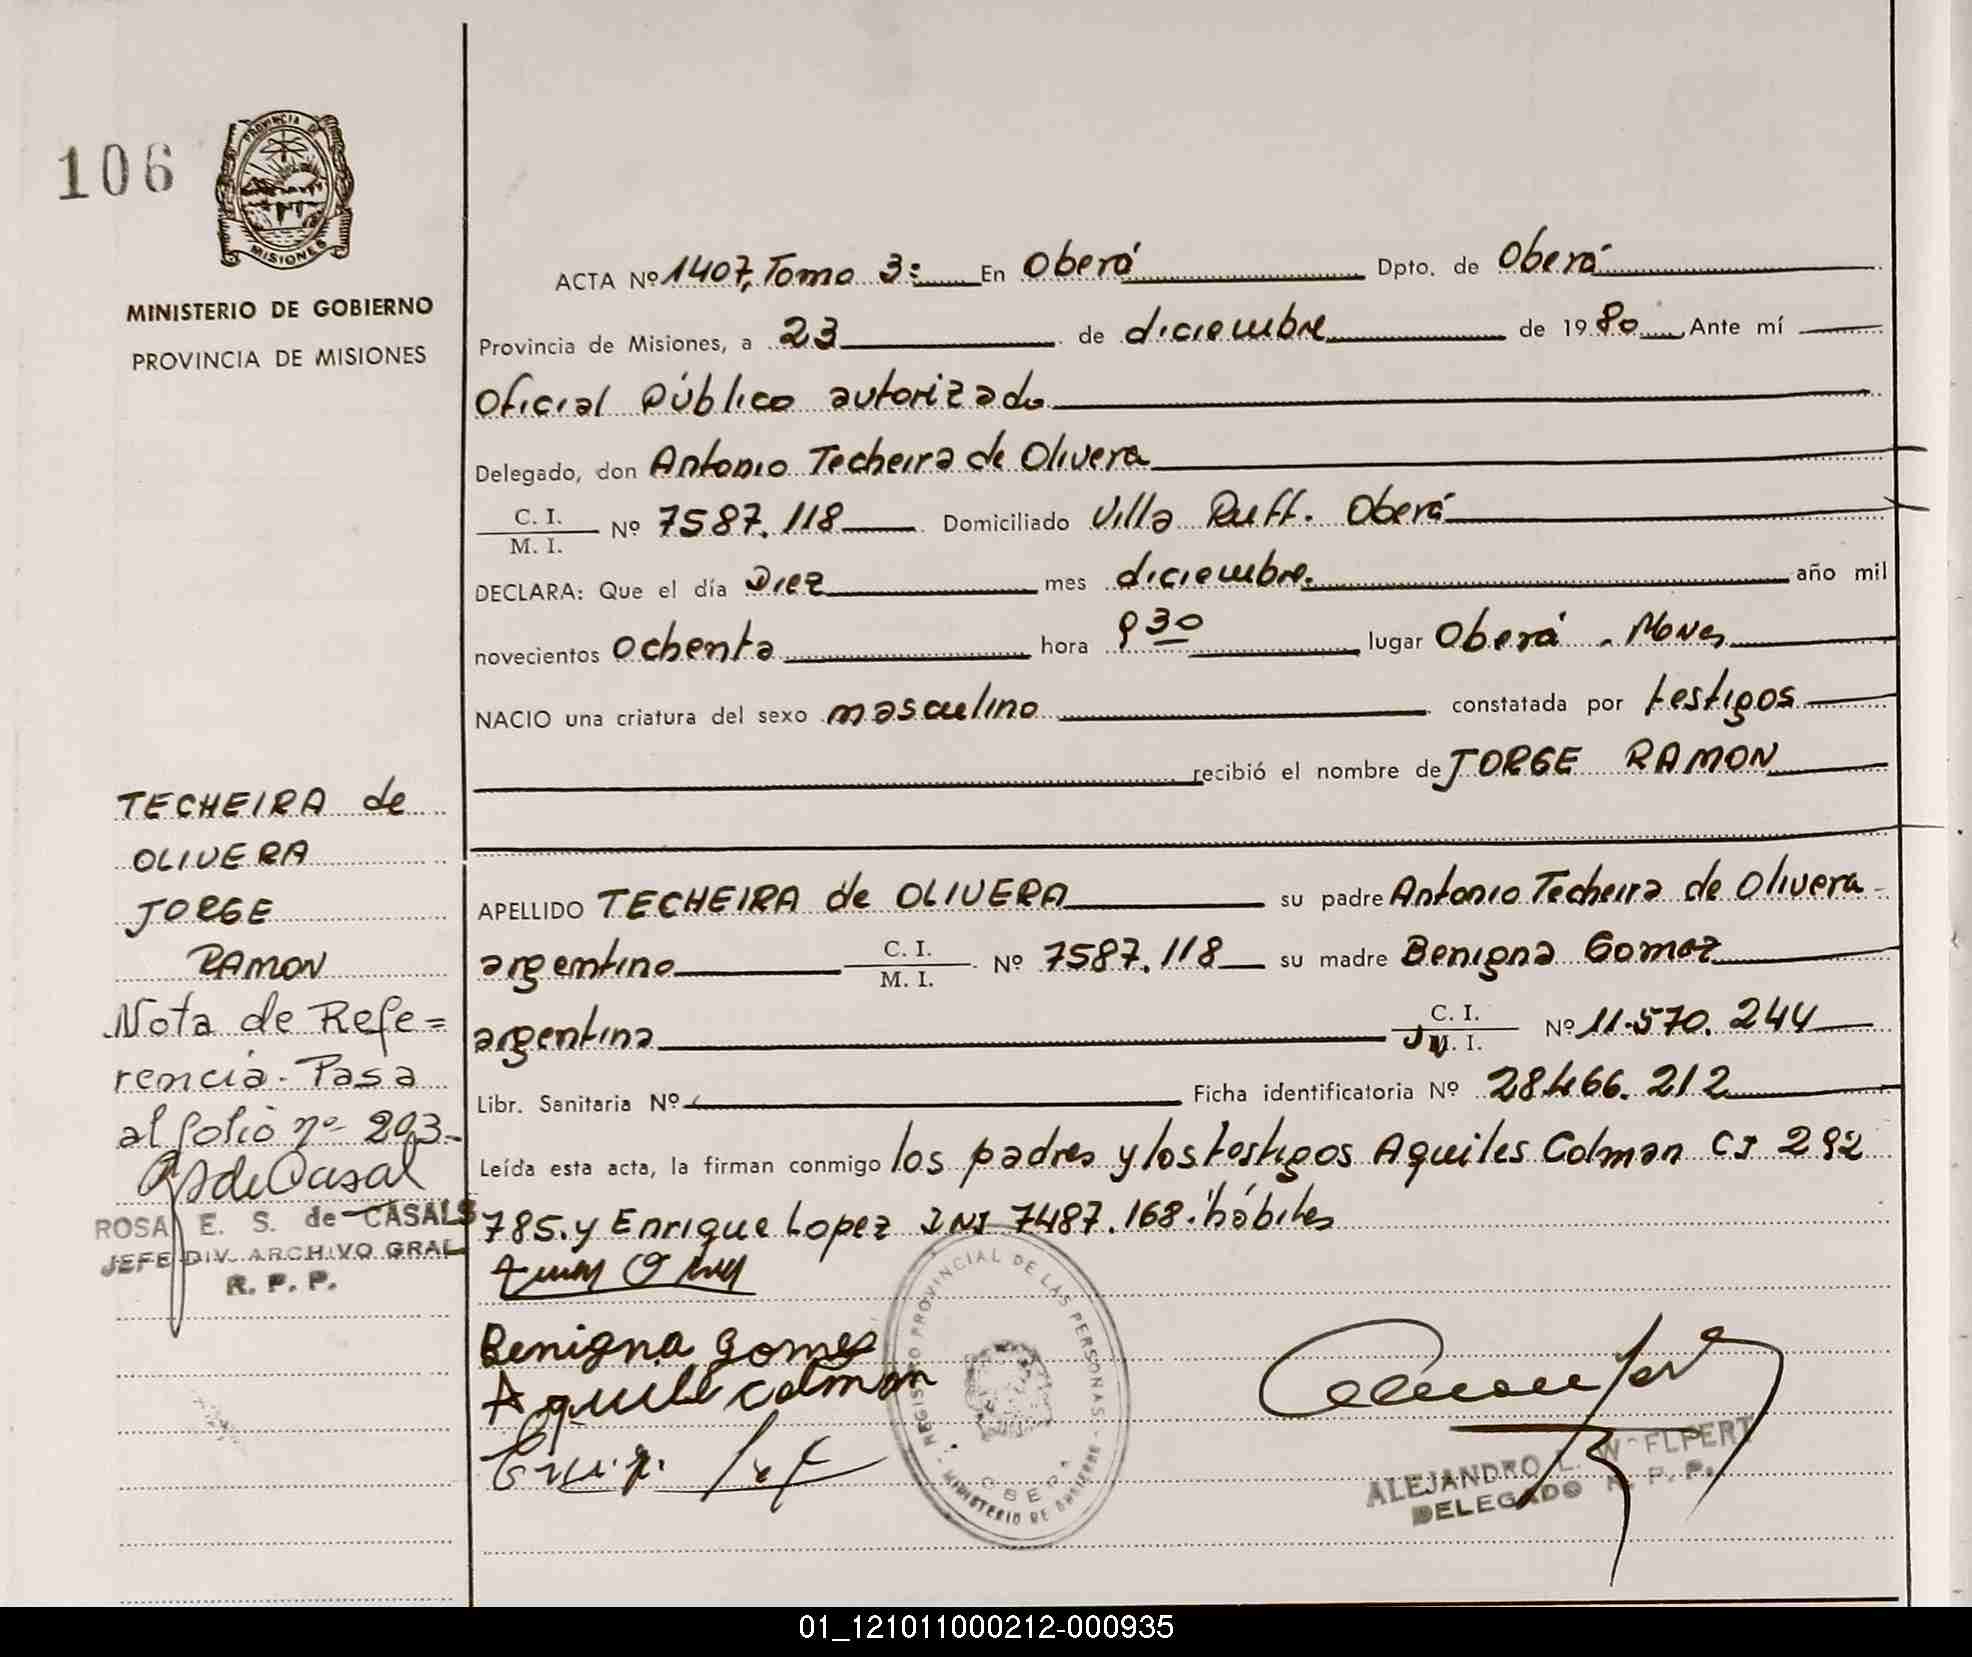 106
PROVINCIA DE
MISIONES
MINISTERIO DE GOBIERNO
PROVINCIA DE MISIONES
ACTA Nº 1407, Tomo 3: En Oberá Dpto. de Oberá
Provincia de Misiones, a 23 de diciembre de 1980 Ante mí
Oficial Público autorizado
Delegado, don Antonio Techeira de Olivera
C. I.
M. I. Nº 7587.118 Domiciliado Villa Ruff. Oberá
DECLARA: Que el día Diez mes diciembre. año mil
novecientos ochenta hora 9 30 lugar Oberá - Mnes
NACIO una criatura del sexo masculino constatada por testigos
recibió el nombre de JORGE RAMON
TECHEIRA de
OLIVERA
JORGE
RAMON
Nota de Refe=
rencia. Pasa
al folio nº 293.-
ROSA E. S. de CASALS
JEFE DIV. ARCHIVO GRAL
R. P. P.
APELLIDO TECHEIRA de OLIVERA su padre Antonio Techeira de Olivera
argentino C. I.
M. I. Nº 7587.118 su madre Benigna Gomez
argentina C. I.
M. I. Nº 11.570.244
Libr. Sanitaria Nº Ficha identificatoria Nº 28.466.212
Leída esta acta, la firman conmigo los padres y los testigos Aquiles Colman CI 292
785. y Enrique Lopez DNI 7487.168. hábiles
Benigna Gomes
Aquile colman
REGISTRO PROVINCIAL DE LAS PERSONAS
MINISTERIO DE GOBIERNO
OBERA
ALEJANDRO L.
DELEGADO R. P. P.
01_121011000212-000935